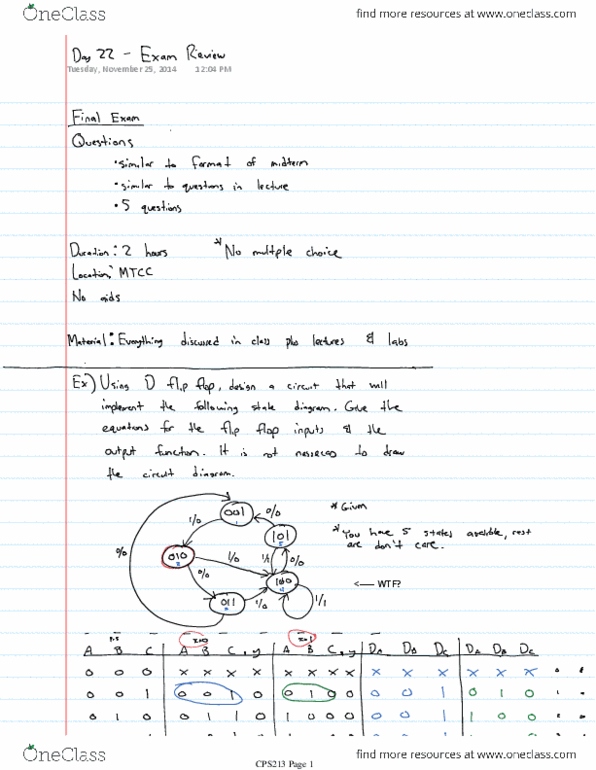 OneClass
find more resources at www.oneclass.com
Day 22 - Exam Review
Tuesday, November 25, 2014 12:04 PM
Final Exam
Questions
• similar to format of midterm
• similar to questions in lecture
• 5 questions
Duration: 2 hours * No multple choice
Location: MTCC
No aids
Material: Everything discussed in class plus lectures & labs
Ex) Using D flip flop, design a circuit that will
implement the following state diagram. Give the
equations for the flip flop inputs & the
output function. It is not to draw
the circuit diagram.
001
0/0
* Given
1/0
101
* You have 5 states availible, rest
are don't care.
0/0
010
1/0
1/1
0/0
0/0
100
<---- WTF?
011
1/0
1/1
P.S x=0 x=1
A B C A B C, y A B C, y DA DB DC DA DB DC
0 0 0 x x x x x x x x x x x x x x
0 0 1 0 0 1 0 0 1 0 0 0 0 1 0 1 0
0 1 0 0 1 1 0 1 0 0 0 0 0 1 1 0 0
OneClass
find more resources at www.oneclass.com
CPS213 Page 1